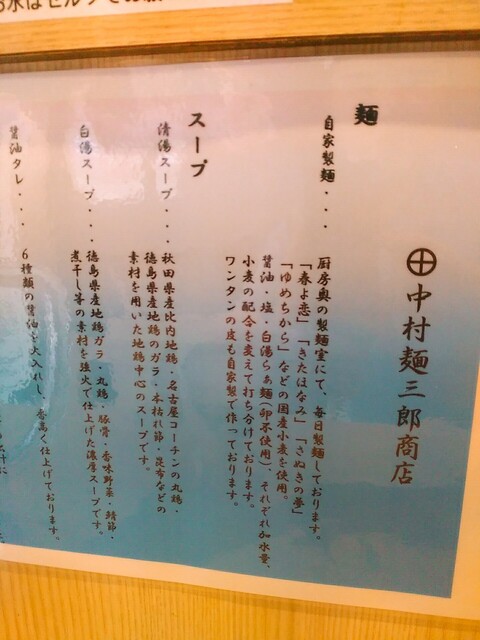 お水はセルフでお願
中村麺三郎商店
麺
自家製麺・・・
厨房奥の製麺室にて、毎日製麺しております。
「春よ恋」「きたほなみ」「さぬきの夢」
「ゆめちから」などの国産小麦を使用。
醤油・塩・白湯らぁ麺(卵不使用)、それぞれ加水量、
小麦の配合を変えて打ち分けております。
ワンタンの皮も自家製で作っております。
スープ
清湯スープ・・・・
秋田県産比内地鶏・名古屋コーチンの丸鶏・
徳島県産地鶏のガラ・本枯れ節・昆布などの
素材を用いた地鶏中心のスープです。
白湯スープ・・・・
徳島県産地鶏ガラ・丸鶏・豚骨・香味野菜・鯖節・
煮干し等の素材を強火で仕上げた濃厚スープです。
醤油タレ・・・
6種類の醤油を火入れし、香高く仕上げております。